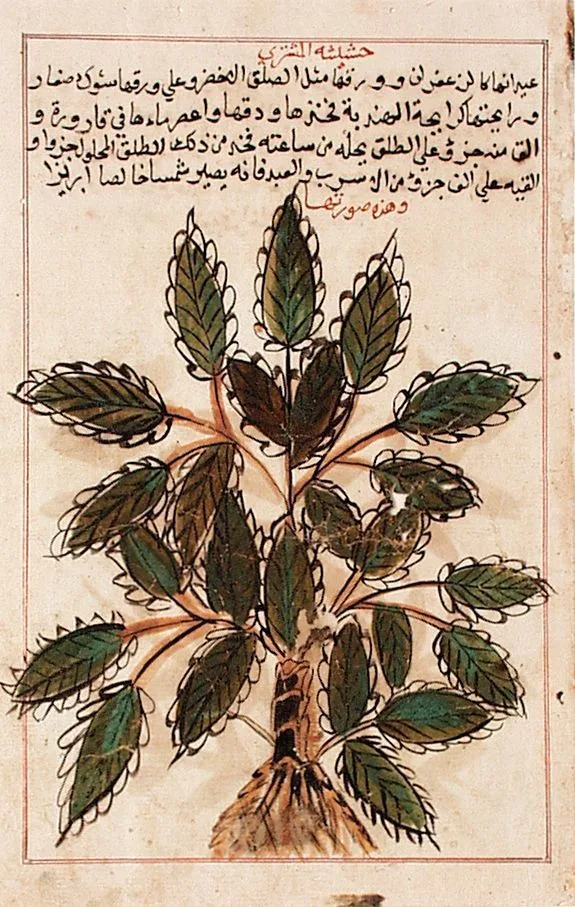 حشيشة المشتري
عيدانها كالزعفران وورقها مثل السلق الاخضر وعلي ورقها شوك صغار
ورايحتها كرايحة الهندبة تخنزها ودقها واعصر ماءها في قارورة و
الق منه جزؤ علي الطلق يحله من ساعته فخذ من ذلك الطلق المحلول جزوا و
القيه علي الف جزؤ من الاسرب والعبد فانه يصير شمسا خالصا ابريزا
وهذه صورتها